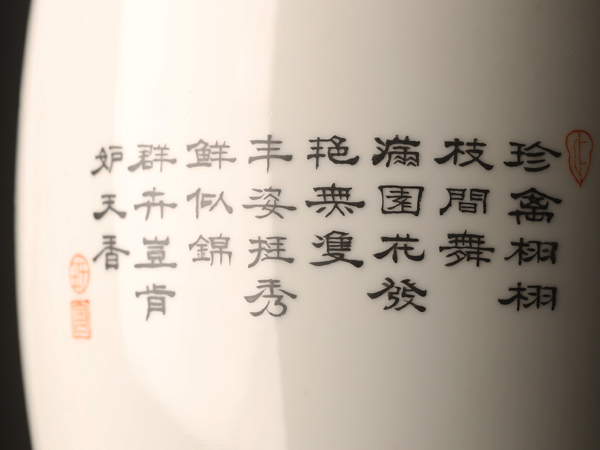 珍禽栩栩
枝間舞
滿園花發
艳無雙
丰姿挺秀
鮮似錦
群卉豈肯
妒天香